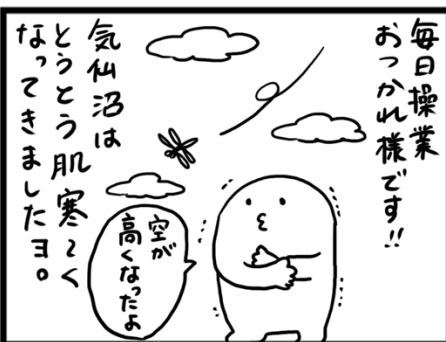 毎日操業
おつかれ様です!!
気仙沼は
とうとう肌寒〜く
なってきましたヨ。
空が
高くなったよ